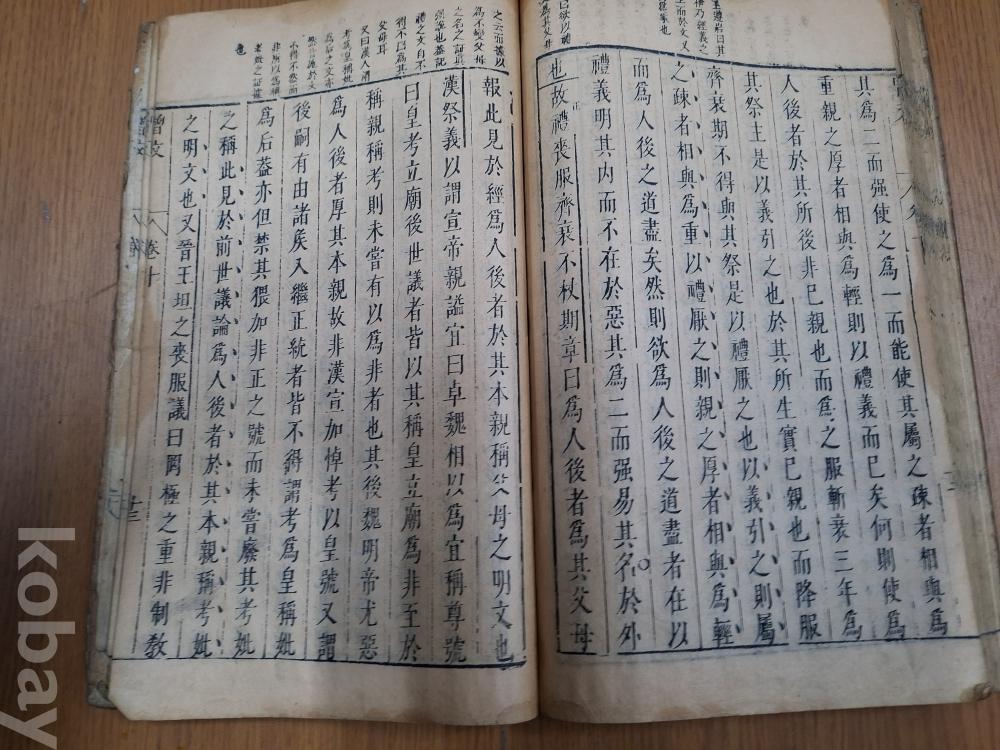 王遵岩曰其
至而於文又
也
已欲以禮
爲其父母
其爲二而强使之爲一而能使其屬之疎者相與爲
重親之厚者相與爲輕則以禮義而已矣何則使爲
人後者於其所後非已親也而爲之服斬衰三年爲
其祭主是以義引之也於其所生實已親也而降服
齊衰期不得與其祭是以禮厭之也以義引之則屬
之疎者相與爲重以禮厭之則親之厚者相與爲輕
而爲人後之道盡矣然則欲爲人後之道盡者在以
禮義明其内而不在於惡其爲二而强易其名於外
也故禮喪服齊衰不杖期章曰爲人後者爲其父母
之云而據以
爲不變父母
之名之証其
也葢記
禮之文自不
得不曰爲其
父母耳
又曰漢人謂
考爲皇稱妣
爲后之文亦
不得不然而
非所以爲稱
考妣之証據
也
報此見於經爲人後者於其本親稱父母之明文也
漢祭義以謂宣帝親謚宜曰卓魏相以爲宜稱尊號
曰皇考立廟後世議者皆以其稱皇立廟爲非至於
稱親稱考則未嘗有以爲非者也其後魏明帝尤惡
爲人後者厚其本親故非漢宣加悼考以皇號又謂
後嗣有由諸矦入繼正統者皆不得謂考爲皇稱妣
爲后葢亦但禁其猥加非正之號而未嘗廢其考妣
之稱此見於前世議論爲人後者於其本親稱考妣
之明文也又晉王坦之喪服議曰罔極之重非制教
曾文 卷十 廿三
kobay